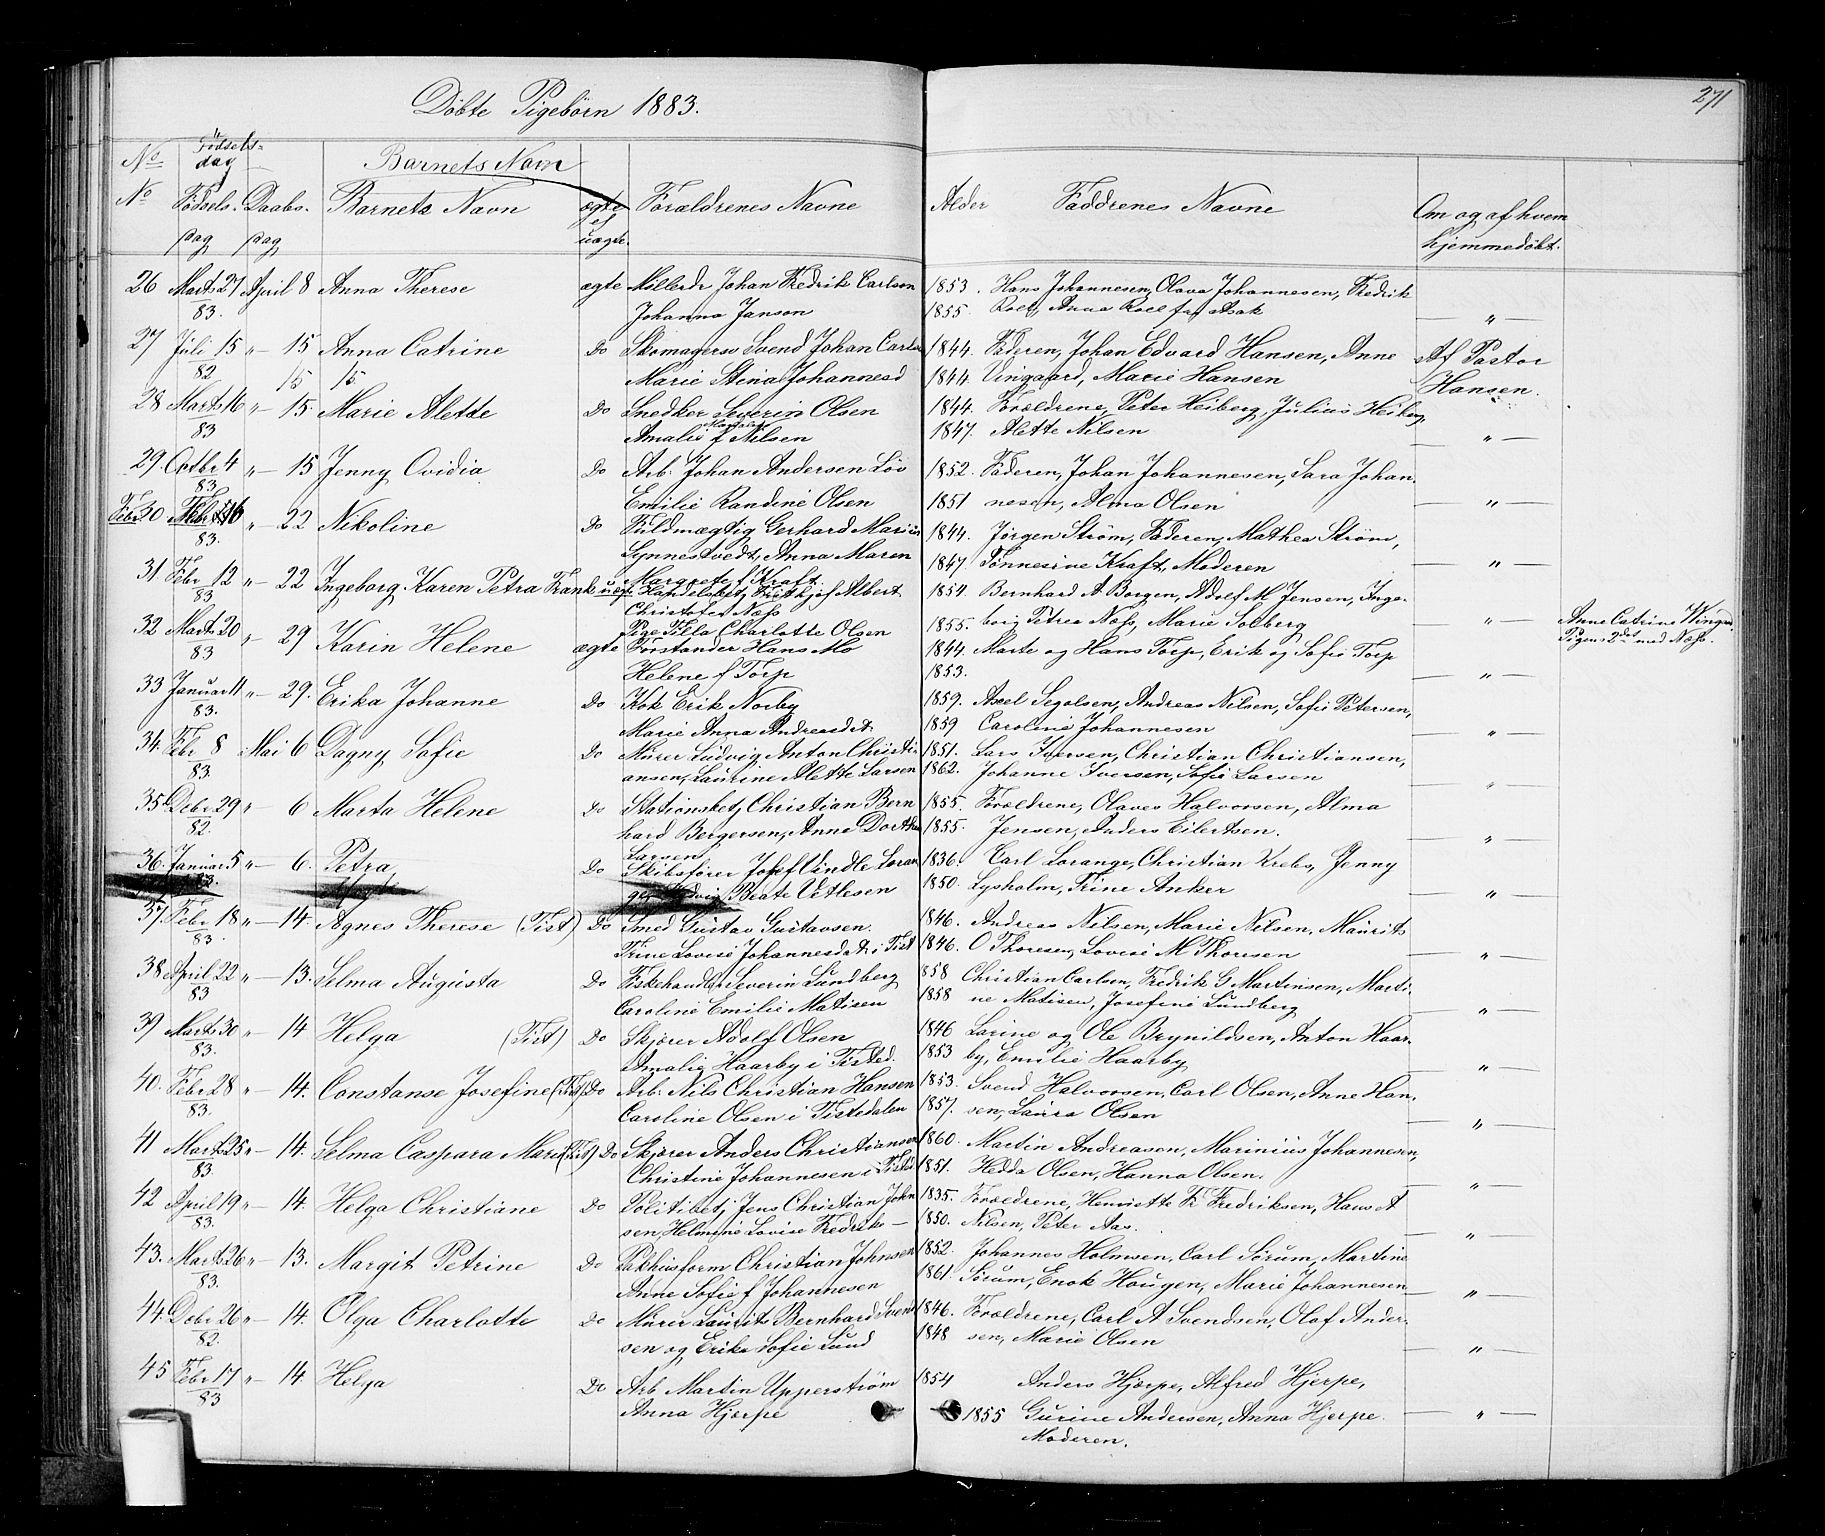 Døbte Pigebørn 1883.
271
No Fødsels- dag Barnets Navn
No Fødsels- Daabs- Barnets Navn ægte Forældrenes Navne Alder Faddrenes Navne Om og af hvem
dag dag el uægte. hjemmedøbt.
26 Marts 27 April 8 Anna Therese ægte Johan Fredrik Carlson 1853. Hans Johannesen, Olava Johannesen, Fredrik
83. Johanna Janson 1855. Anna — " —
27 Juli 15 " — 15 Anna Catrine Do Skomagersv Svend Johan Carls 1844. Faderen, Johan Edvard Hansen, Anne Af Pastor
82 Marie Stina Johannesd 1844. Vingaard, Marie Hansen Hansen.
15 15
28 Marts 16 " — 15 Marie Alette Do Snedker Severin Olsen 1844. Forældrene, Peter Heiberg, Julius Heiberg,
83 Amalie f Nilsen 1847. Alette Nilsen — " —
29. Octbr 4 " — 15 Jenny Ovidia Do Arb. Johan Andersen Löv 1852. Faderen, Johan Johannesen, Sara Johan
83 Emilie Randine Olsen 1851 nesen, Alma Olsen — " —
30 Febr 16 " — 22 Nikoline Do Fuldmægtig Gerhard Marius 1844. Jörgen Ström, Faderen, Mathea Ström,
83. Lynnestvedt, Anna Maren 1847. Tönnesine Kraft, Moderen — " —
Margrete f Kraft
31 Febr 12 " — 22 Ingeborg Karen Petra Frank uægte Handelsbetj Fritkjof Albert 1854. Bernhard A Borgen, Adolf M Jensen, Inge-
83 Christofer Næss
Pige Tilla Charlotte Olsen 1855. borg Petrea Næss, Marie Solberg — " — Anne Catrine
Pigens 2det med Næss.
32 Marts 20 " — 29 Karin Helene ægte Forstander Hans Mo 1844. Marte og Hans Torp, Erik og Sofie Torp
83 Helene f Torp 1853. — " —
33 Januar 11 " — 29. Erika Johanne Do Kok Erik Norby 1859. Axel Segolsen, Andreas Nilsen, Sofie Petersen,
83. Marie Anna Andreasdt. 1859 Caroline Johannesen — " —
34. Febr 8 Mai 6 Dagny Sofie Do Murer Ludvig Anton Christi- 1851. Lars Iversen, Christian Christiansen,
83. ansen, Laurine Alette Larsen 1862. Johanne Iversen, Sofie Larsen — " —
35. Debr 29 " — 6 Marta Helene Do Stationsbetj Christian Bern 1855. Forældrene, Olaves Halvorsen, Alma
82. hard Bergersen, Anne Dorthea 1855. Jensen, Anders Eilertsen. — " —
Larsen
36. Januar 5 " — 6. Petra Do Skibsfører Josef Lindle Loran 1836. Carl Lorange, Christian Krebs, Jenny
83. ge, Hedvig Beate Vetlesen 1850. Lysholm, Trine Anker — " —
37 Febr 18 " — 14. Agnes Therese (Tist) Do Smed Gustav Gustavsen. 1846. Andreas Nilsen, Marie Nilsen, Maurits
83. Trine Lovise Johannesdatr i Tist 1846. O Thoresen, Lovise M Thoresen — " —
38 April 22 " — 13. Selma Augusta Do Fiskehandler Severin Lundberg 1858 Christian Carlsen, Fredrik G Martinsen, Marti-
83 Caroline Emilie Matisen 1858 ne Matisen, Josefine Lundberg — " —
39 Marts 30 " — 14 Helga (Tist) Do Skjærer Adolf Olsen 1846 Larine og Ole Brynildsen, Anton Haar-
83. Amalie Haarby i Tisted. 1853 by, Emilie Haarby — " —
40. Febr 28 " — 14. Constanse Josefine (Tist) Do Arb. Nils Christian Hansen 1853. Svend Halvorsen, Carl Olsen, Anne Han-
83. Caroline Olsen i Tistedalen 1857. sen, Laura Olsen — " —
41 Marts 25 " — 14. Selma Caspara Marie (Tist) Do Skjærer Anders Christiansen 1860. Martin Andreasen, Marinius Johannesen,
83. Christine Johannesen i Tisted 1851. Hedda Olsen, Hanna Olsen. — " —
42 April 19 " — 14. Helga Christiane Do Politibetj Jens Christian John 1835. Forældrene, Henriette Fr Fredriksen, Hans A
83. sen, Helmine Lovise Fredriks — 1850. Nilsen, Peter Aas. — " —
43. Marts 26 " — 13. Margit Petrine Do Pakhusform Christian Johnsen 1852. Johannes Holmsen, Carl Sørum, Martine
83. Anne Sofie f Johannesen 1861. Sørum, Enok Haugen, Marie Johannesen — " —
44. Debr 26 " — 14. Olga Charlotte Do Murer Laurits Bernhard Svend 1846. Forældrene, Carl A Svendsen, Olaf Ander-
82. sen og Erika Sofie Lund 1848 sen, Marie Olsen — " —
45 Febr 17 " — 14. Helga Do Arb. Martin Upperström 1854 Anders Hjærpe, Alfred Hjerpe,
83 Anna Hjærpe 1855 Gurine Andersen, Anna Hjerpe. — " —
Moderen.